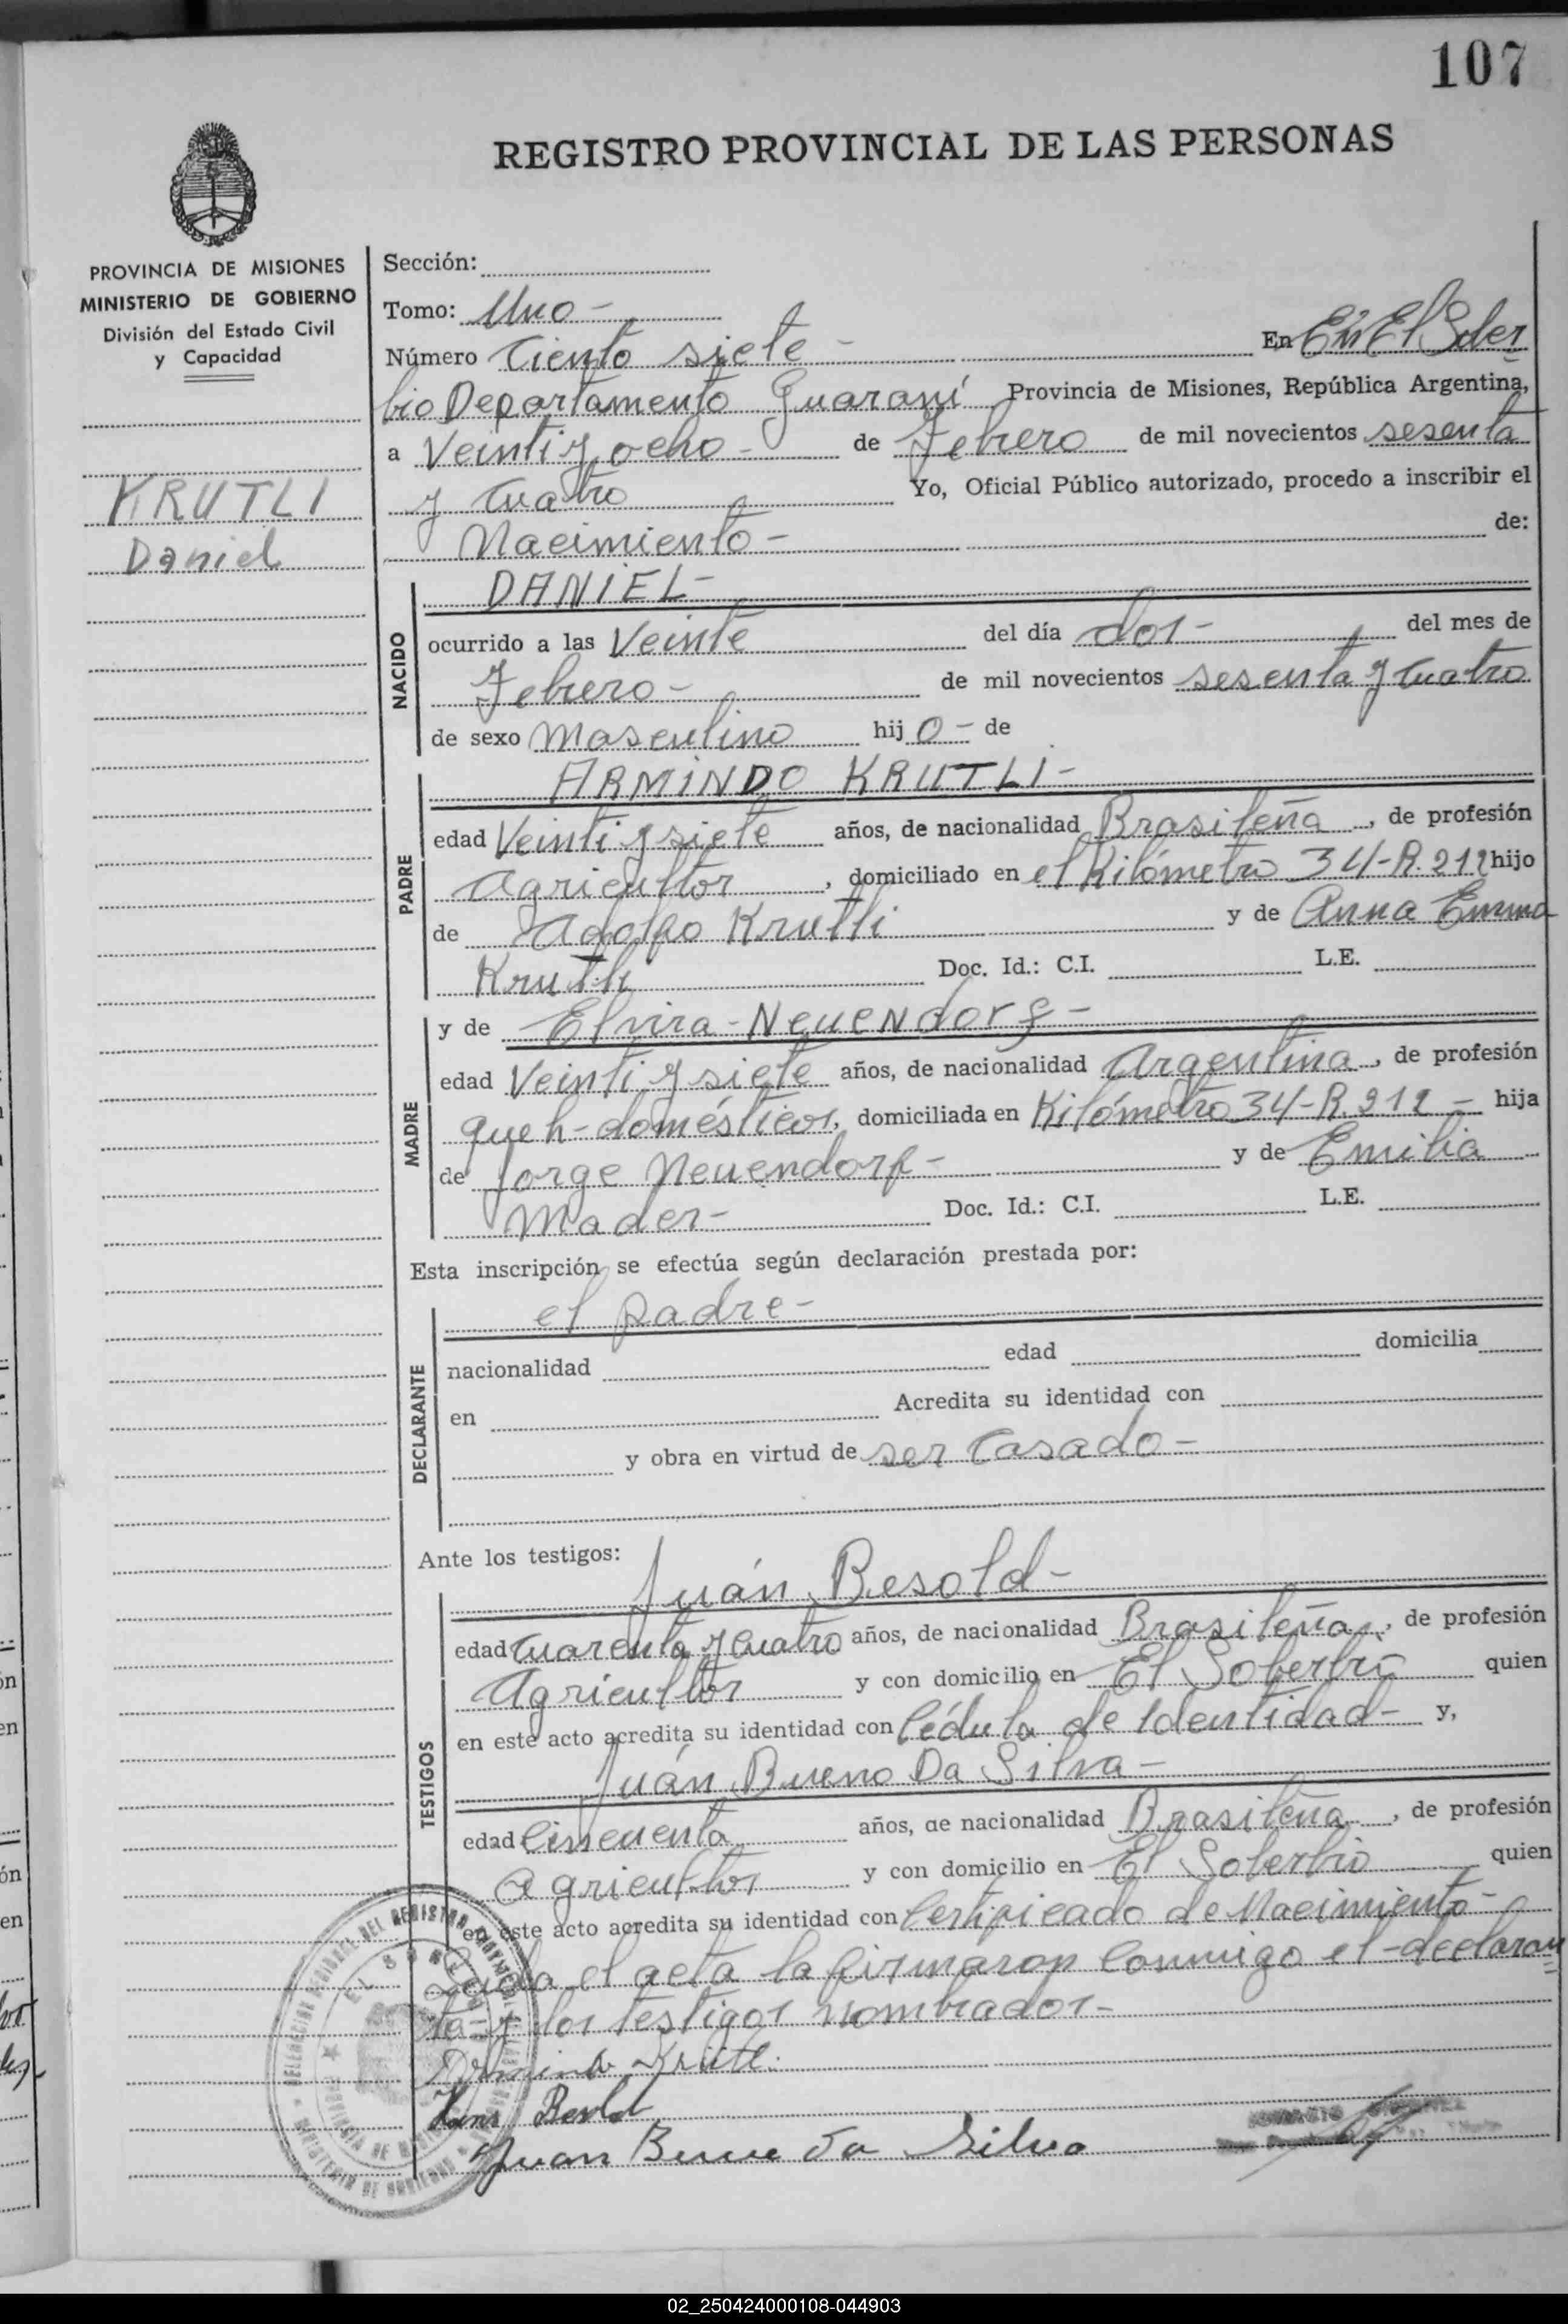 107
REGISTRO PROVINCIAL DE LAS PERSONAS
PROVINCIA DE MISIONES
MINISTERIO DE GOBIERNO
División del Estado Civil
y Capacidad
KRUTLI
Daniel
Sección:
Tomo: Uno -
Número Ciento siete - En En El Sober
bio Departamento Guaraní Provincia de Misiones, República Argentina,
a Veinti y ocho - de Febrero de mil novecientos sesenta
y Cuatro Yo, Oficial Público autorizado, procedo a inscribir el
Nacimiento - de:
NACIDO
DANIEL -
ocurrido a las Veinte del día dos - del mes de
Febrero - de mil novecientos sesenta y Cuatro
de sexo Masculino hij o - de
PADRE
ARMINDO KRUTLI -
edad Veinti y siete años, de nacionalidad Brasileña , de profesión
Agricultor , domiciliado en el Kilómetro 34-R. 212 hijo
de Adolfo Krutli y de Anna Emma
Krutli Doc. Id.: C.I. L.E.
MADRE
y de Elvira - Neuendorf -
edad Veinti y siete años, de nacionalidad Argentina , de profesión
queh - domésticos, domiciliada en Kilómetro 34-R 212 - hija
de Jorge Neuendorf - y de Emilia
Mader - Doc. Id.: C.I. L.E.
Esta inscripción se efectúa según declaración prestada por:
DECLARANTE
el padre -
nacionalidad edad domicilia
en Acredita su identidad con
y obra en virtud de ser Casado -
Ante los testigos:
TESTIGOS
Juán Besold -
edad Cuarenta y Cuatro años, de nacionalidad Brasileña , de profesión
Agricultor y con domicilio en El Soberbio quien
en este acto acredita su identidad con Cédula de Identidad - y,
Juán Bueno Da Silva -
edad Cincuenta años, de nacionalidad Brasileña , de profesión
agricultor y con domicilio en El Soberbio quien
en este acto acredita su identidad con Certificado de Nacimiento -
Leída el acta la firmaron conmigo el - declaran
te - y los testigos nombrados -
Hans Besold
Juan Bueno da Silva
02_250424000108-044903